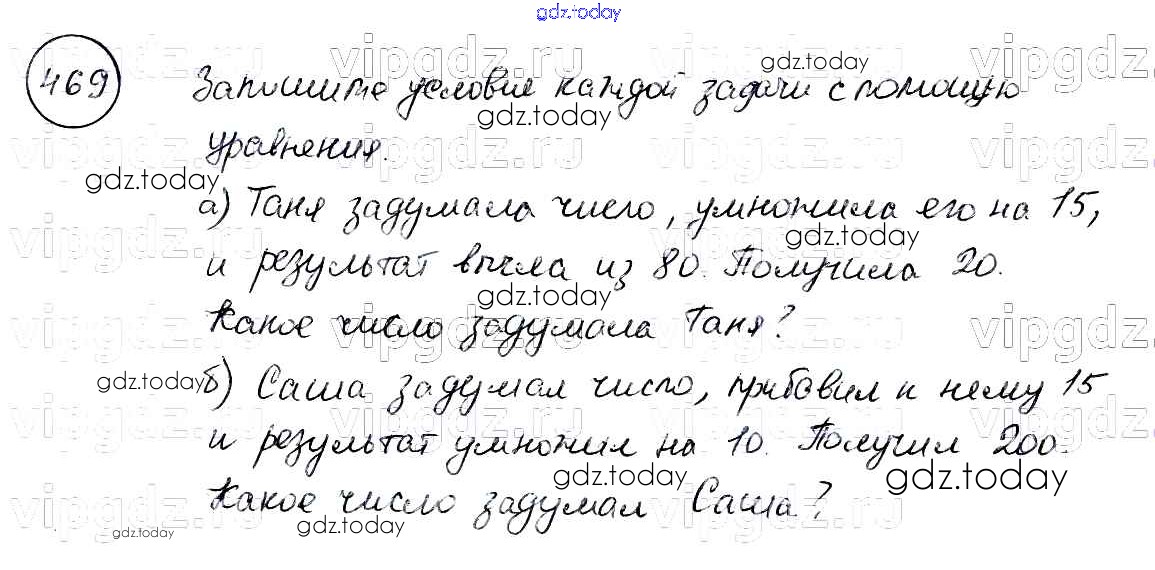 gdz.today
469 Запишите условия каждой задачи с помощью
уравнения.
а) Таня задумала число, умножила его на 15,
и результат вычла из 80. Получила 20.
Какое число задумала Таня?
б) Саша задумал число, прибавил к нему 15
и результат умножил на 10. Получил 200.
Какое число задумал Саша?